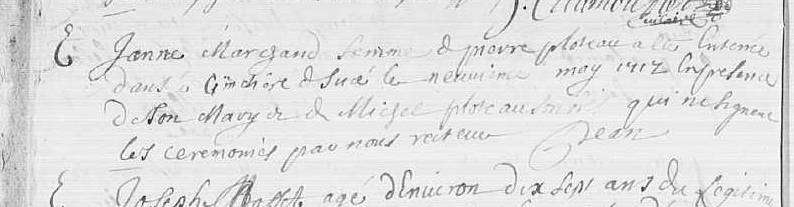 E Janne Marchand femme de pierre ploteau a été Enterrée
dans le Cimetiere de Sucé le neuvieme may 1712 En presence
de son Mary et de Michel ploteau qui ne signent
les ceremonies par nous recteur Jean
E Joseph agé d'Environ dix sept ans du legitime